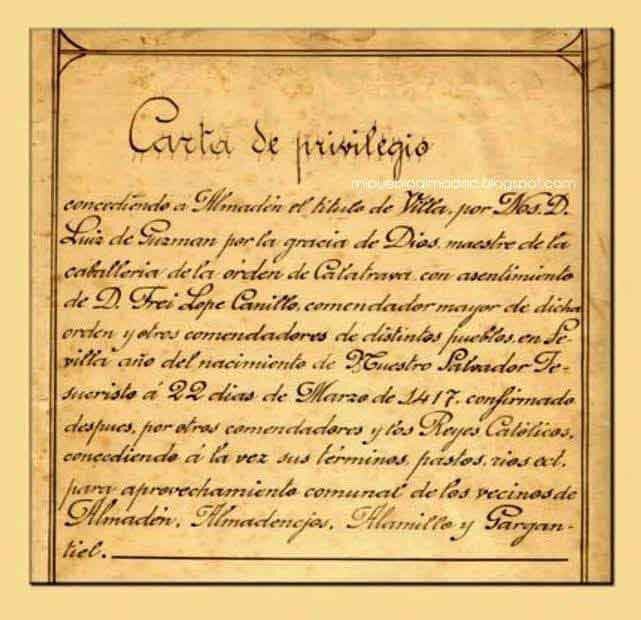 Carta de privilegio
mipuebloalmadric.blogspot.com
concediendo á Almadén el titulo de Villa, por Nos. D.
Luiz de Guzman por la gracia de Dios, maestre de la
caballeria de la órden de Calatrava con asentimiento
de D. Frei Lope Canillo, comendador mayor de dicha
orden y otros comendadores de distintos pueblos, en Se-
villa año del nacimiento de Nuestro Salvador Je-
sucristo á 22 dias de Marzo de 1417, confirmado
despues, por otros comendadores y los Reyes Católicos,
concediendo á la vez sus términos, pastos, rios ect.
para aprovechamiento comunal de los vecinos de
Almadén, Almadenejos, Alamillo y Gargan-
tiel.